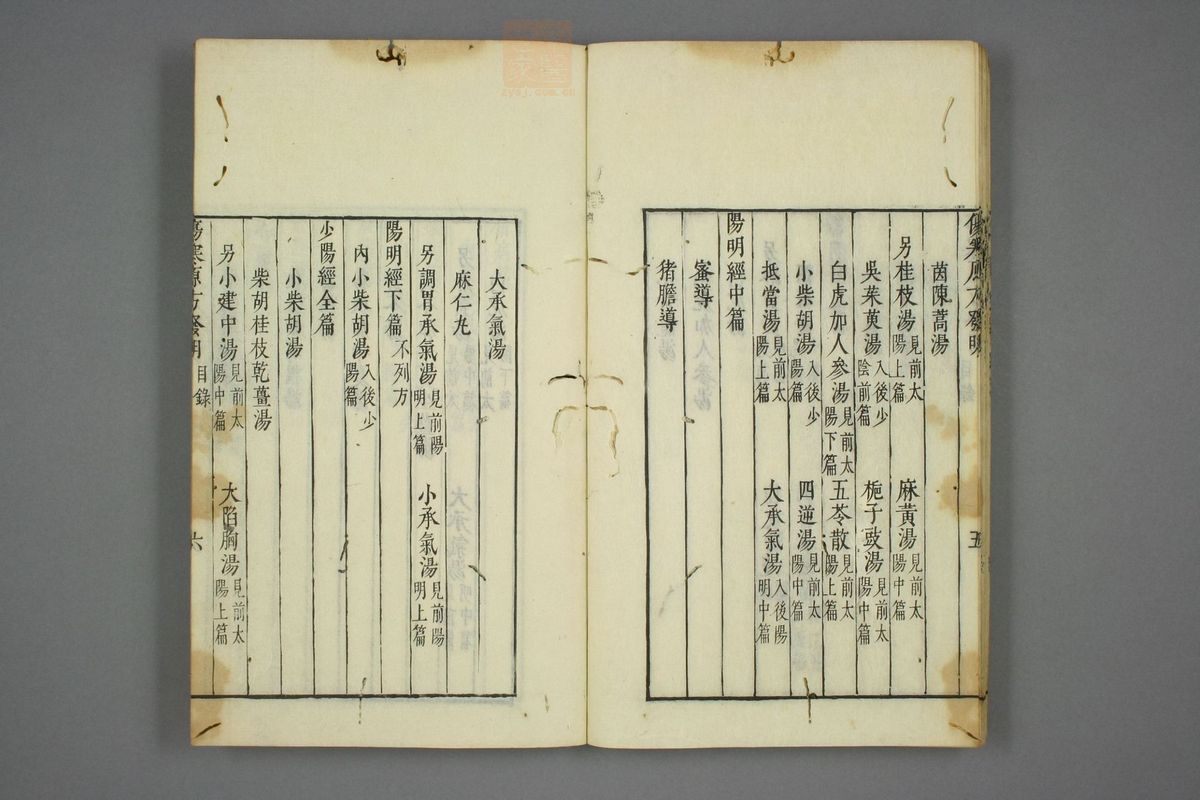 茵陳蒿湯
另桂枝湯見前太陽上篇　麻黃湯見前太陽中篇
吳茱萸湯入後少陰前篇　梔子豉湯見前太陽中篇
白虎加人參湯見前太陽下篇　五苓散見前太陽上篇
小柴胡湯入後少陽篇　四逆湯見前太陽中篇
抵當湯見前太陽上篇　大承氣湯入後陽明中篇
陽明經中篇
蜜導
猪膽導
五
大承氣湯
麻仁丸
另調胃承氣湯見前陽明上篇　小承氣湯見前陽明上篇
陽明經下篇不列方
內小柴胡湯入後少陽篇
少陽經全篇
小柴胡湯
柴胡桂枝乾薑湯
另小建中湯見前太陽中篇　大陷胸湯見前太陽上篇
傷寒原方發明　目錄　六
zysj.com.cn